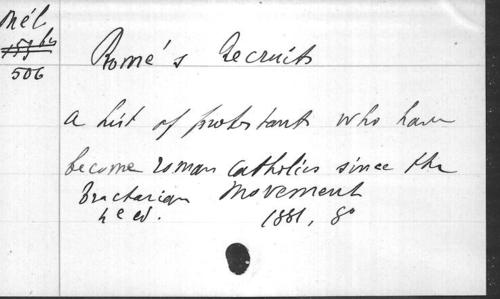 Mél
506
Romé's Recruits
a list of protestants who have
become roman catholics since the
Tractarian Movement
4e ed. 1881, 8o